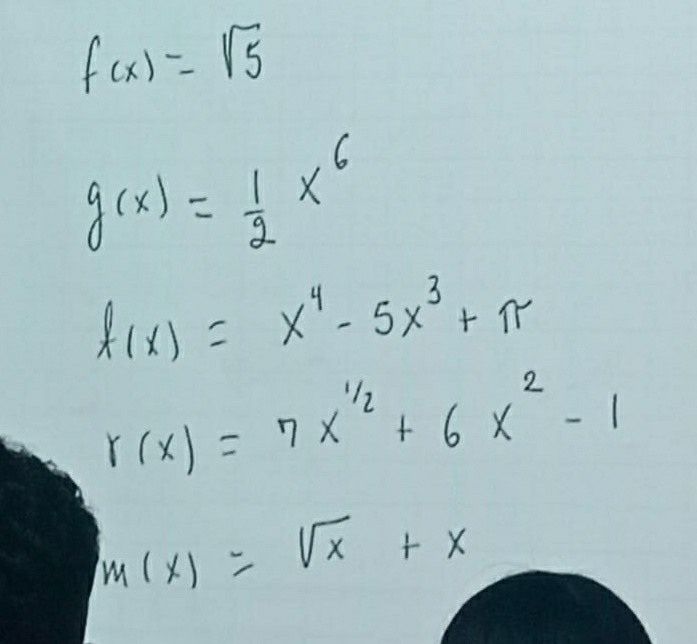 f(x) = √5
g(x) = 1/2 x^6
f(x) = x^4 - 5x^3 + π
r(x) = 7x^1/2 + 6x^2 - 1
m(x) = √x + x